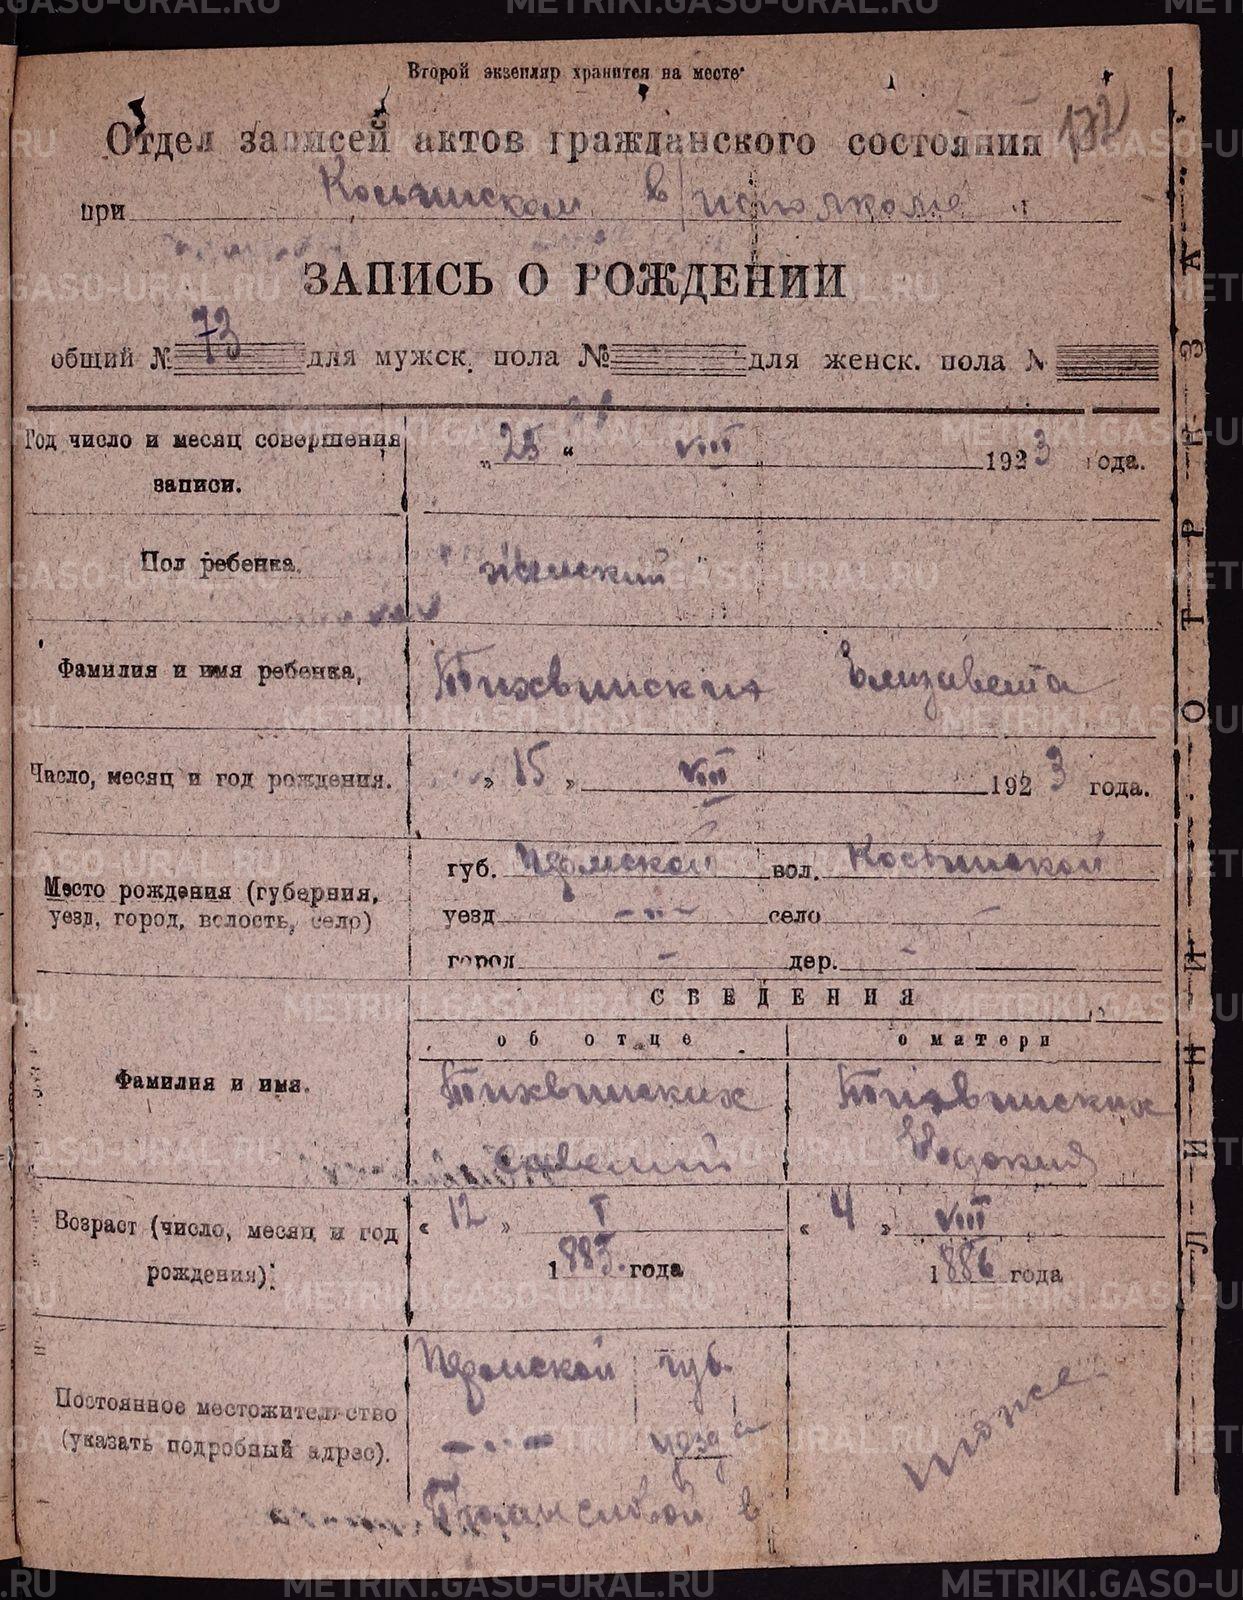 Второй экземпляр хранится на месте
Отдел записей актов гражданского состояния 172
при Косьинском в/исполкоме
ЗАПИСЬ О РОЖДЕНИИ
общий № 73 для мужск. пола № для женск. пола №
Год число и месяц совершения записи.
„25“ VIII 1923 года.
Пол ребенка.
женский
Фамилия и имя ребенка,
Тихвинских Елизавета
Число, месяц и год рождения.
„15„ VIII 1923 года.
Место рождения (губерния, уезд, город, волость, село)
губ. Пермской вол. Косьинской
уезд -"- село -
город - дер. -
СВЕДЕНИЯ
об отце
о матери
Фамилия и имя.
Тихвинских
Савелий
Тихвинских
Евдокия
Возраст (число, месяц и год рождения):
„12„ I
1885. года
„4„ VIII
1886 года
Постоянное местожительство (указать подробный адрес).
Пермской губ.
-"- уезда
в
тоже
ЛИНИЯ ОТРЕЗА
METRIKI.GASO-URAL.RU